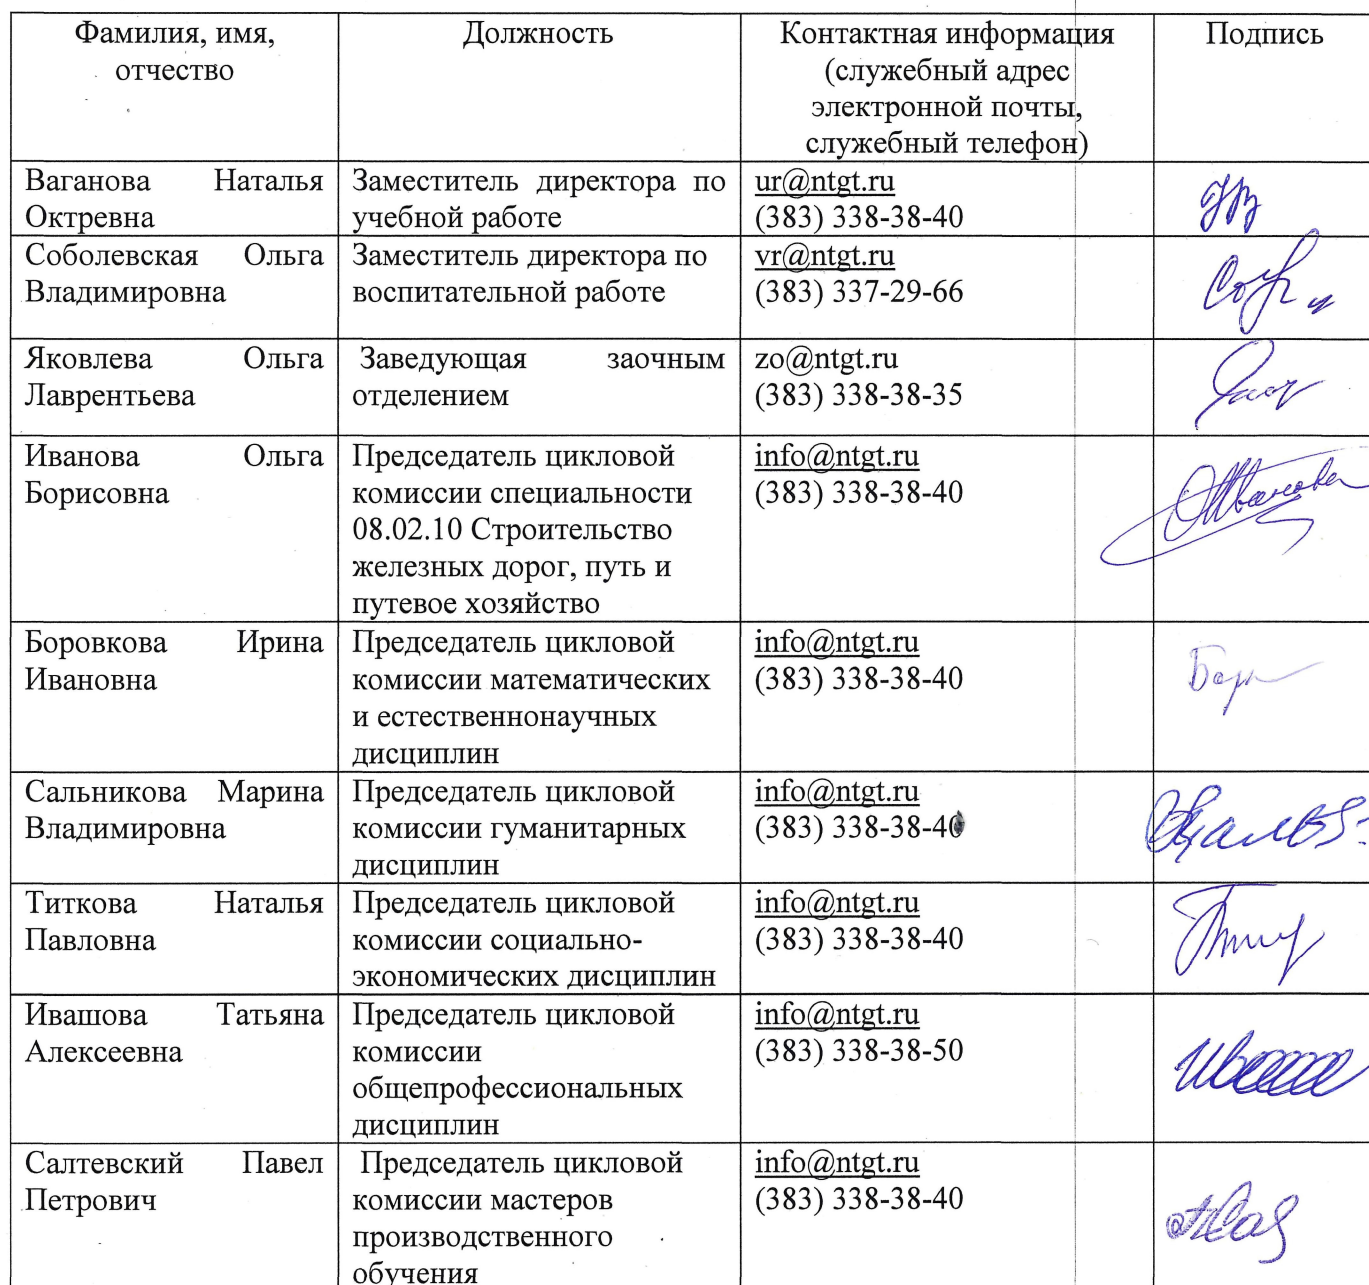 Фамилия, имя,
отчество
Должность
Контактная информация
(служебный адрес
электронной почты,
служебный телефон)
Подпись
Ваганова Наталья
Октревна
Заместитель директора по
учебной работе
ur@ntgt.ru
(383) 338-38-40
Соболевская Ольга
Владимировна
Заместитель директора по
воспитательной работе
vr@ntgt.ru
(383) 337-29-66
Яковлева Ольга
Лаврентьева
Заведующая заочным
отделением
zo@ntgt.ru
(383) 338-38-35
Иванова Ольга
Борисовна
Председатель цикловой
комиссии специальности
08.02.10 Строительство
железных дорог, путь и
путевое хозяйство
info@ntgt.ru
(383) 338-38-40
Боровкова Ирина
Ивановна
Председатель цикловой
комиссии математических
и естественнонаучных
дисциплин
info@ntgt.ru
(383) 338-38-40
Сальникова Марина
Владимировна
Председатель цикловой
комиссии гуманитарных
дисциплин
info@ntgt.ru
(383) 338-38-40
Титкова Наталья
Павловна
Председатель цикловой
комиссии социально-
экономических дисциплин
info@ntgt.ru
(383) 338-38-40
Ивашова Татьяна
Алексеевна
Председатель цикловой
комиссии
общепрофессиональных
дисциплин
info@ntgt.ru
(383) 338-38-50
Салтевский Павел
Петрович
Председатель цикловой
комиссии мастеров
производственного
обучения
info@ntgt.ru
(383) 338-38-40